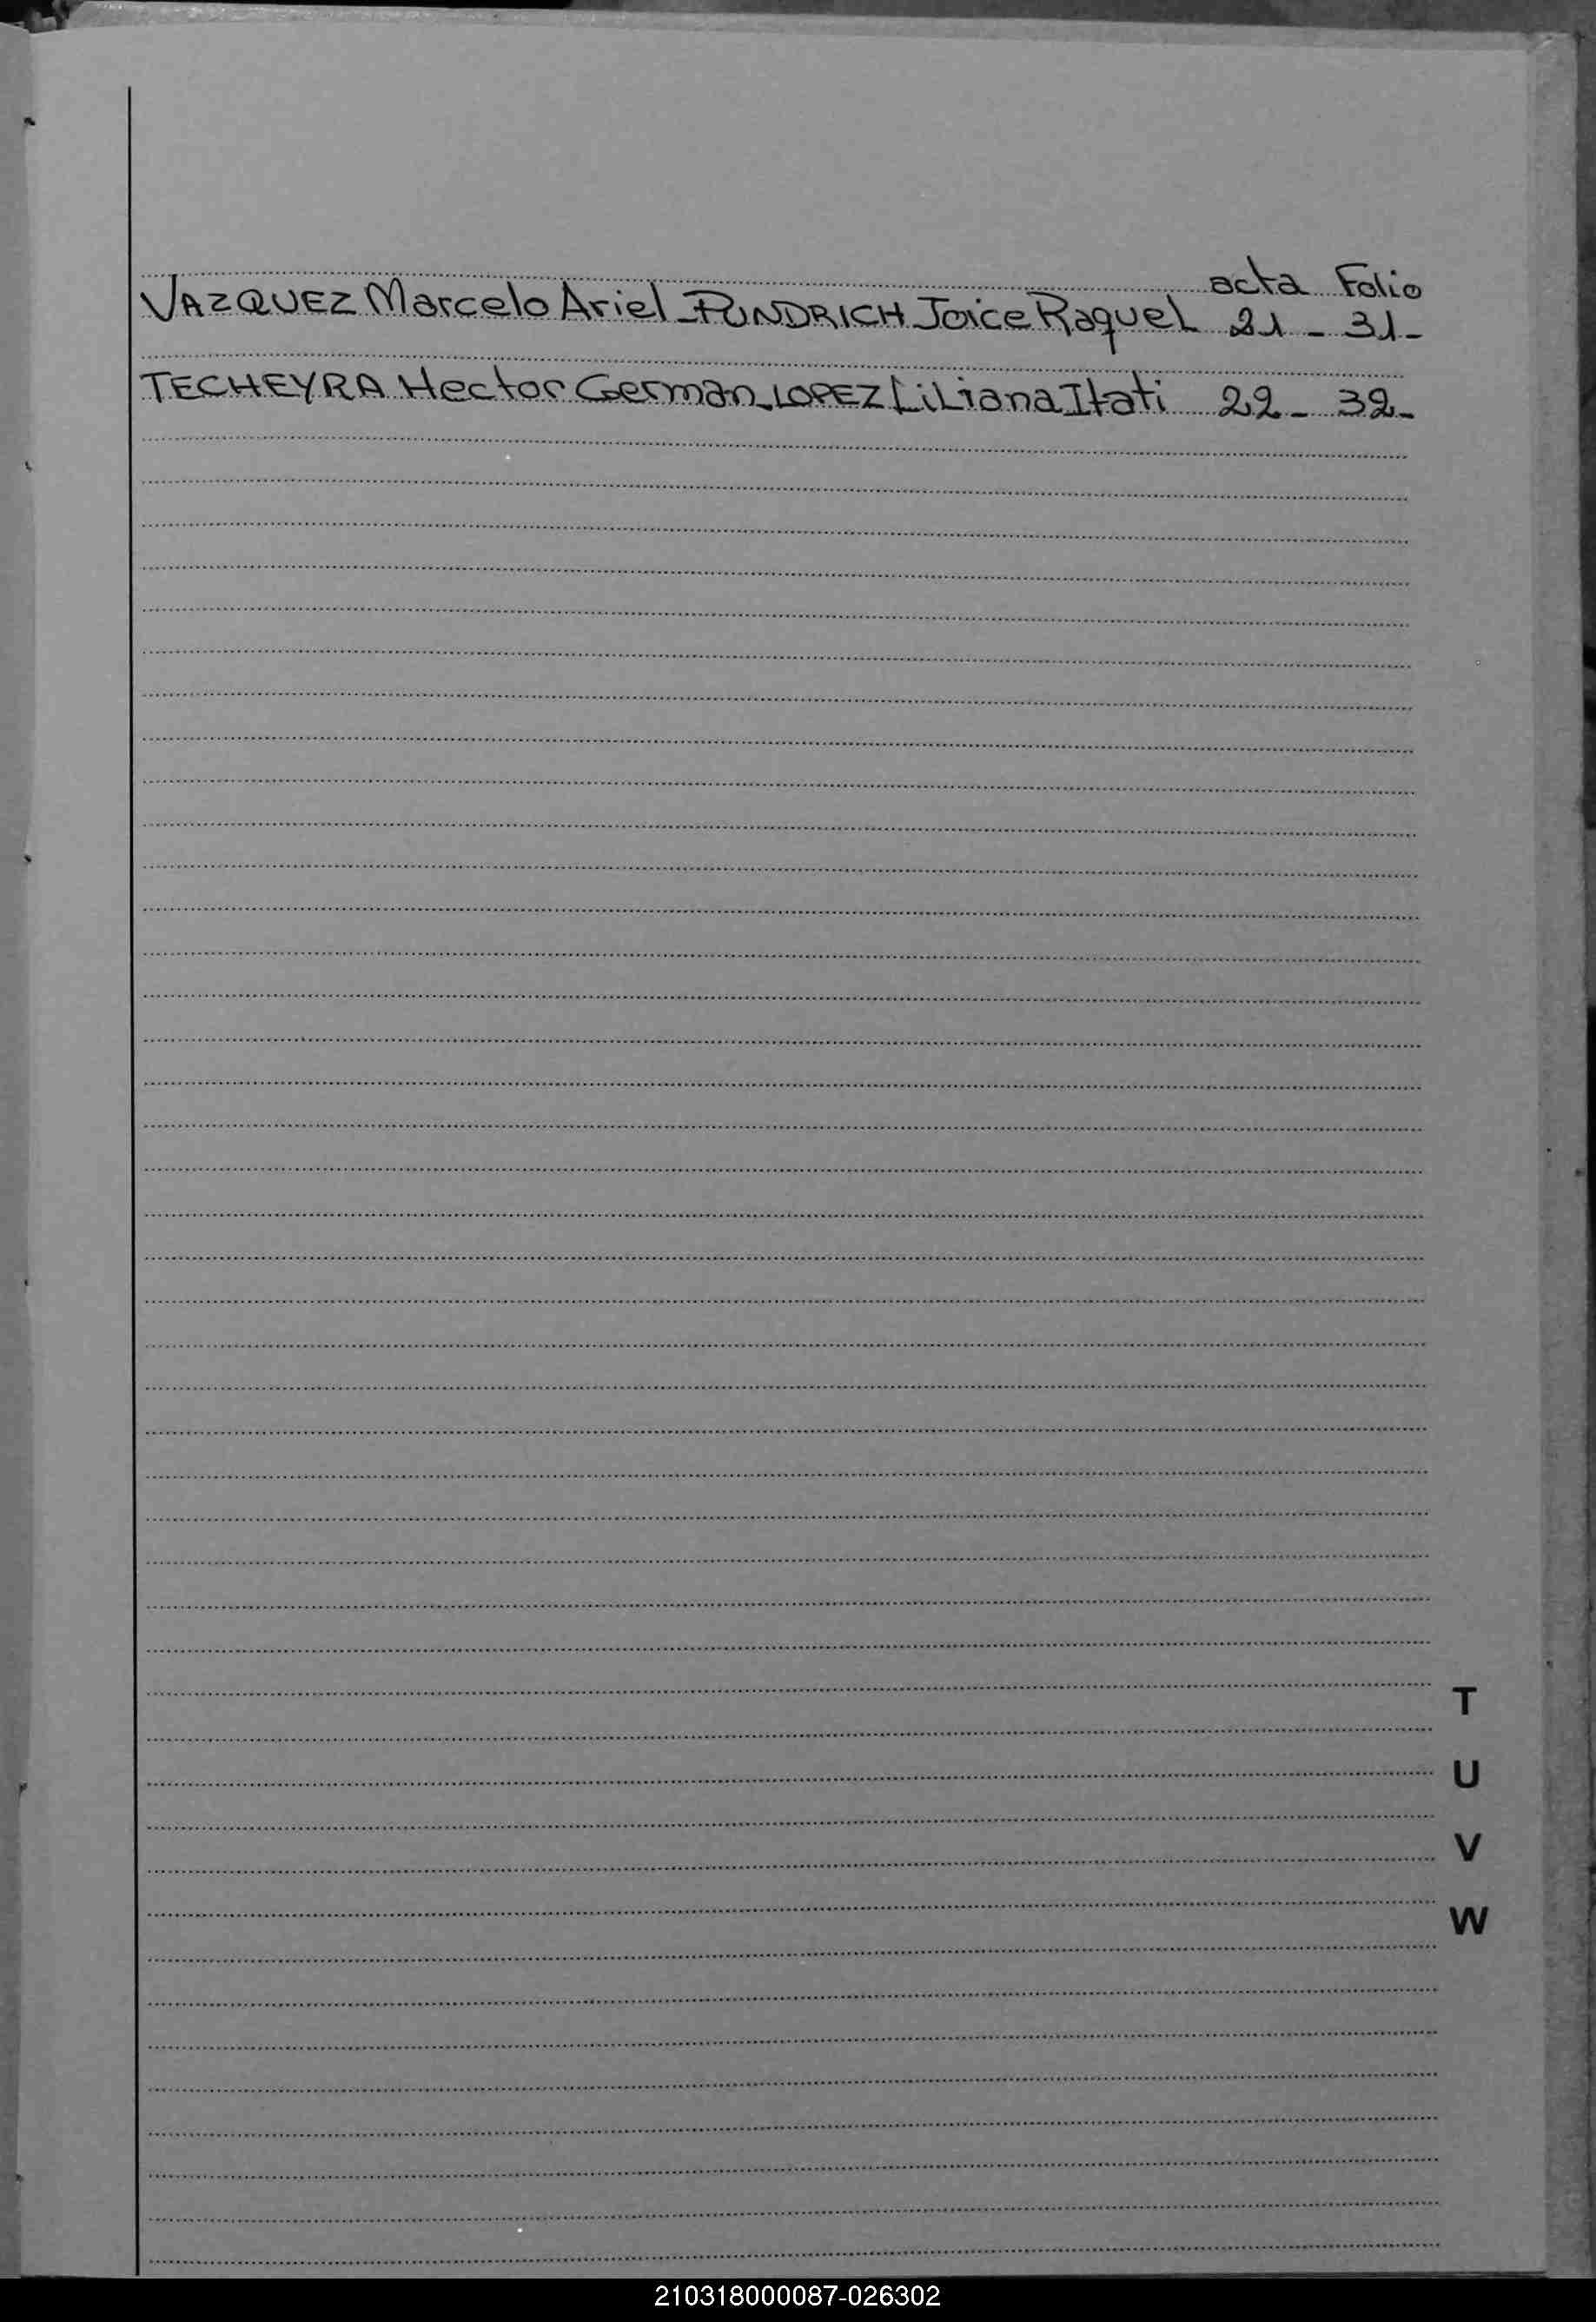 acta Folio
VAZQUEZ Marcelo Ariel - PUNDRICH Joice Raquel 21 - 31 -
TECHEYRA Hector German - LOPEZ Liliana Itati 22 - 32 -
T
U
V
W
210318000087-026302